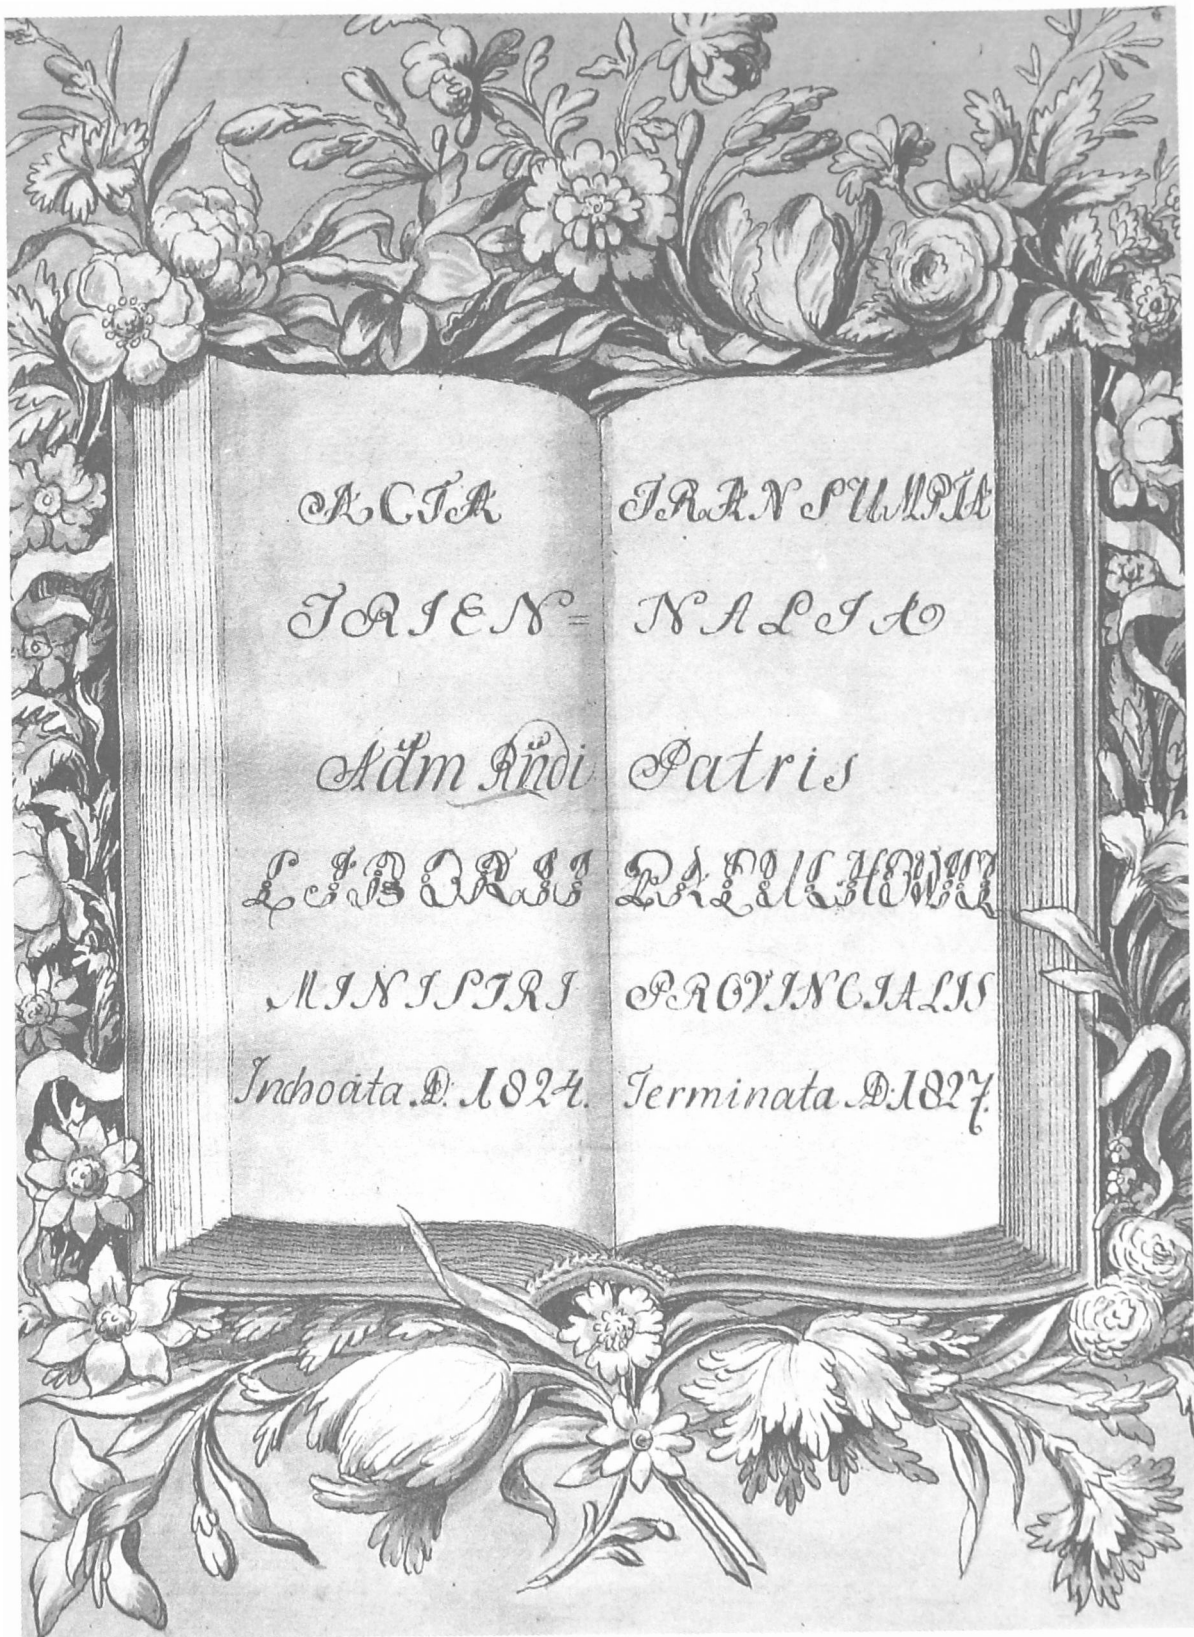 ACTA TRANSUMPTA
TRIEN= NALIA
Adm Rndi Patris
LIBORII
MINISTRI PROVINCIALIS
Inchoata AD. 1824. Terminata AD: 1827.